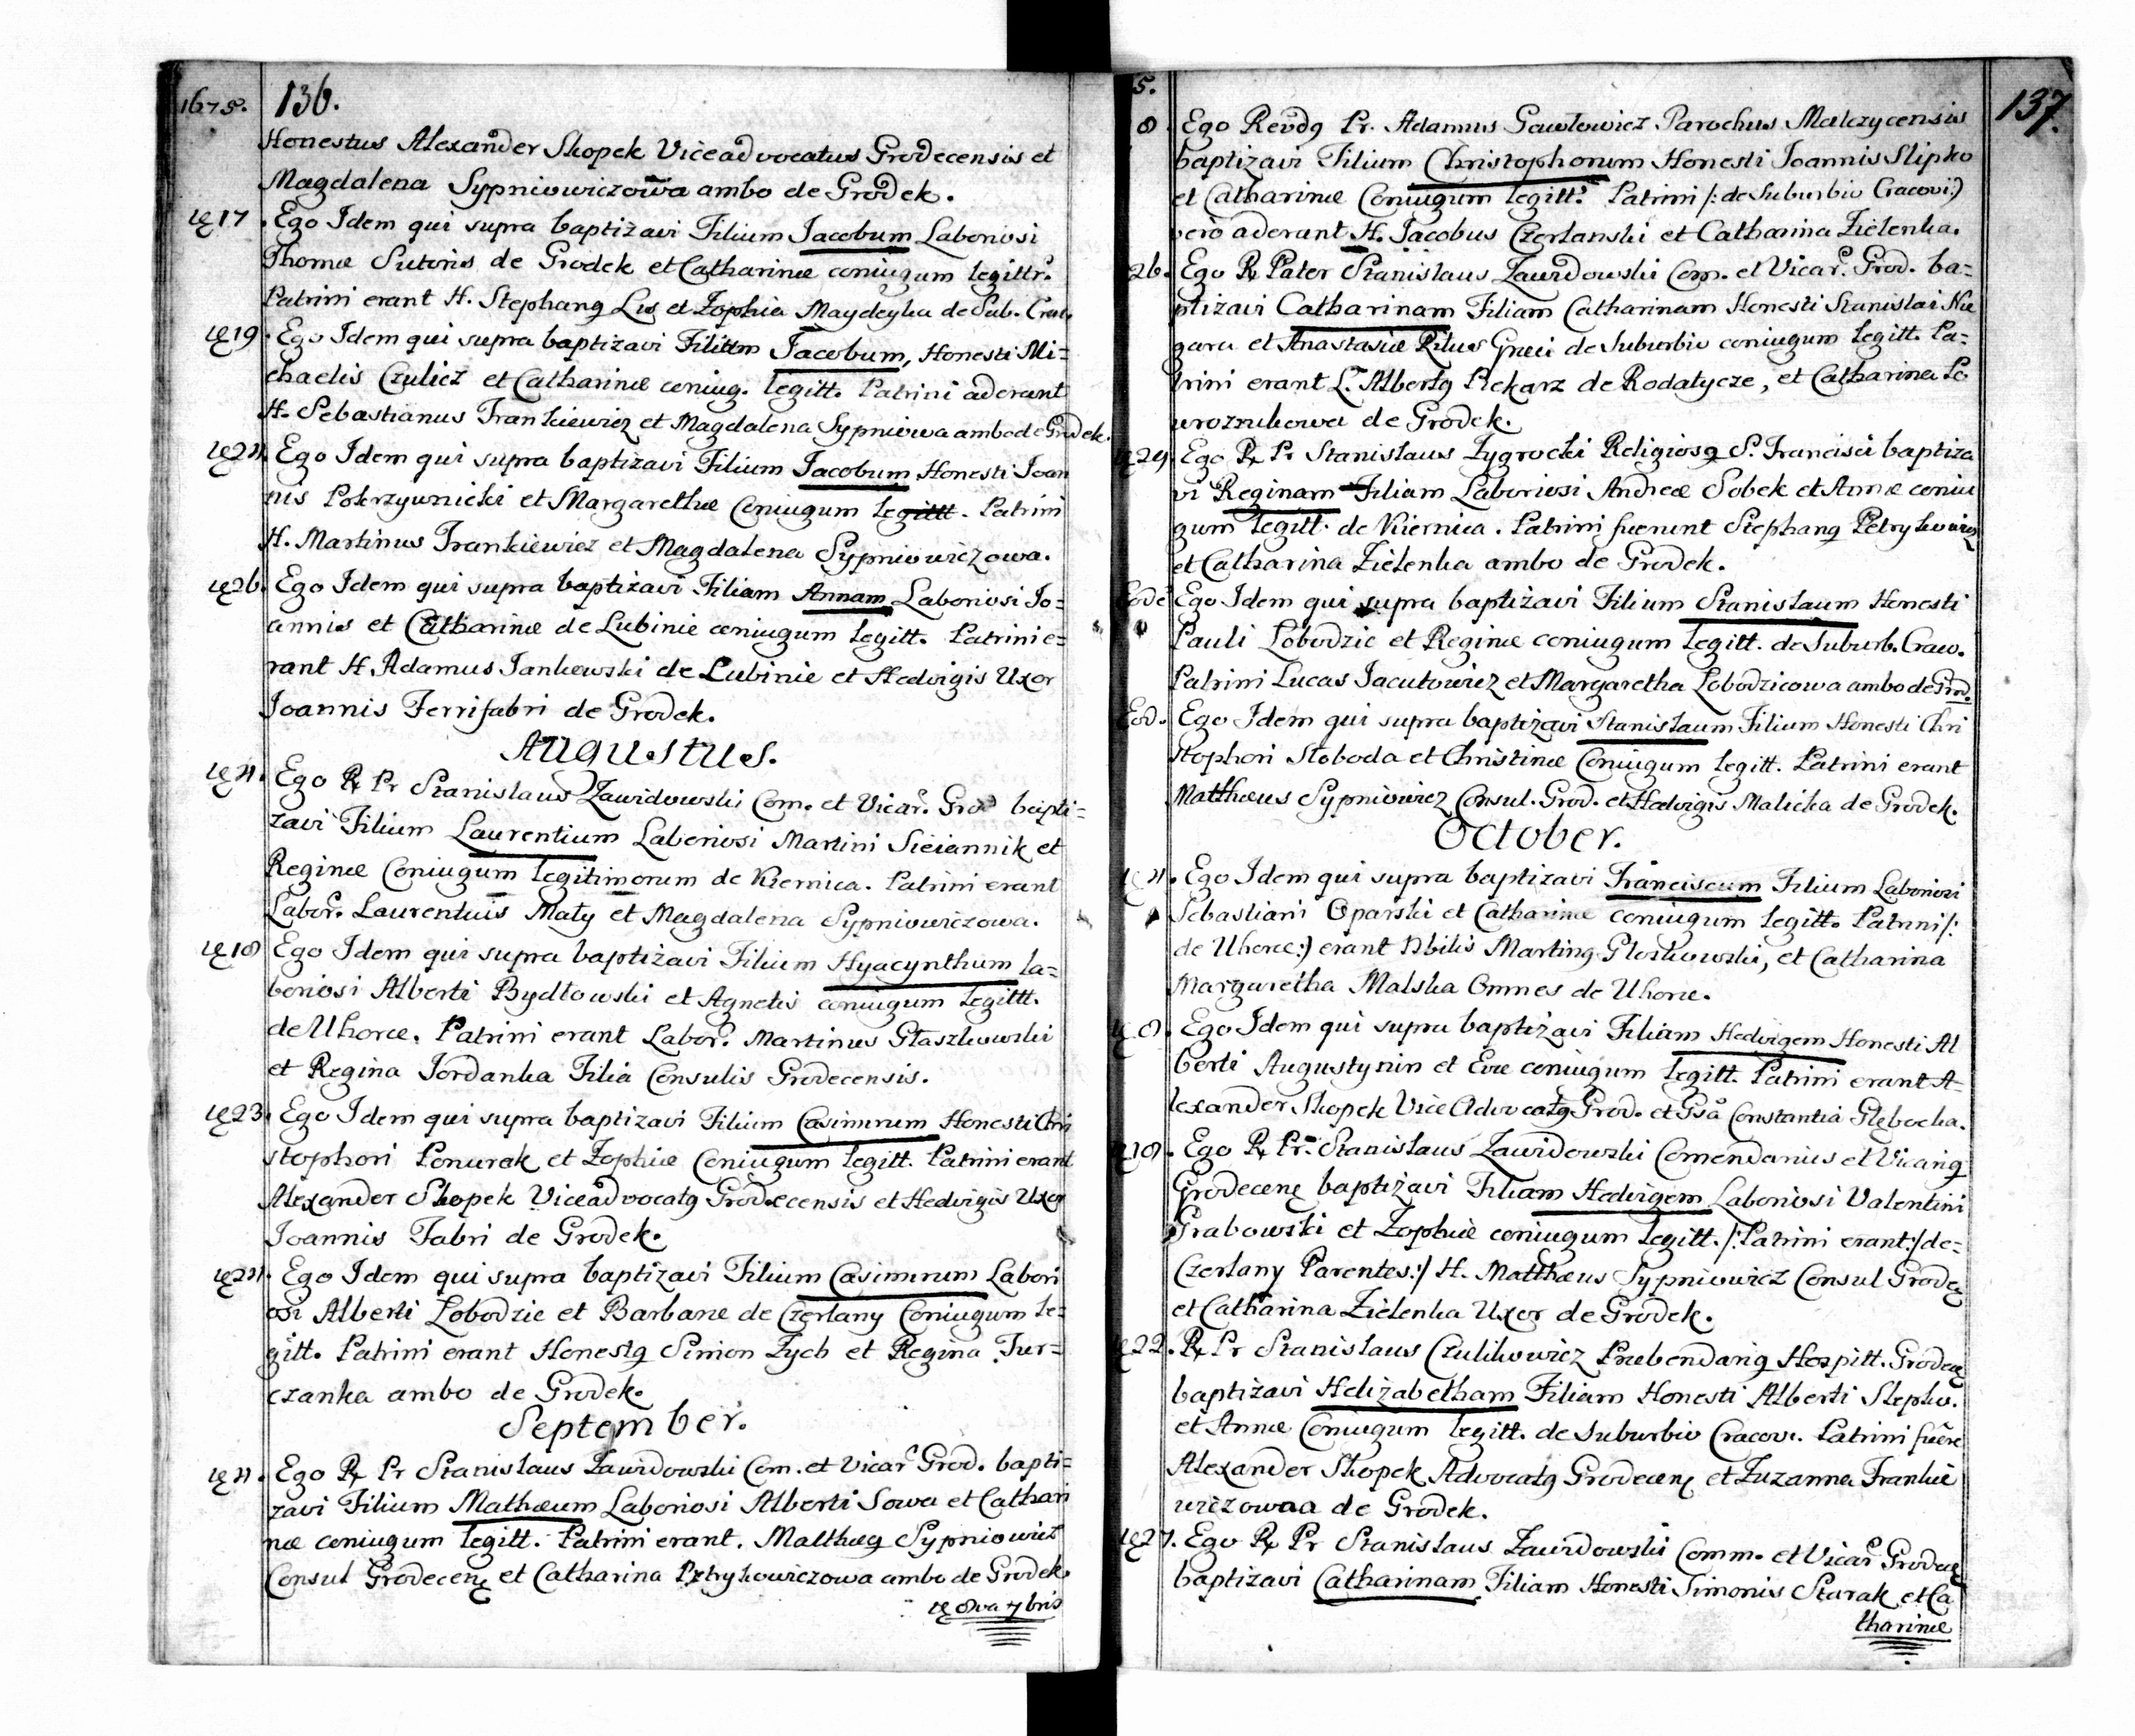 1675.
136.
Honestus Alexander Skopek Viceadvocatus Grodecensis et
Magdalena Sypniowiczowa ambo de Grodek.
17. Ego Idem qui supra baptizavi Filium Iacobum Laboriosi
Thomæ Sutoris de Grodek et Catharinæ coniugum legittr.
Patrini erant H. Stephanq Lis et Zophia Maydeyka de Sub. Crac.
19. Ego Idem qui supra baptizavi Filium Iacobum, Honesti Mi=
chaelis Czulicz et Catharinæ coniug. legitt. Patrini aderant
H. Sebastianus Frankiewicz et Magdalena Sypniowa ambo de Grodek.
24. Ego Idem qui supra baptizavi Filium Iacobum Honesti Joan
nis Pokrzywnicki et Margarethæ Coniugum legittt. Patrini
H. Martinus Frankiewicz et Magdalena Sypniowiczowa.
26. Ego Idem qui supra baptizavi Filiam Annam Laboriosi Jo=
annis et Catharinæ de Lubinie coniugum legitt. Patrini e=
rant H. Adamus Jankowski de Lubinie et Hedvigis Uxor
Joannis Ferrifabri de Grodek.
Augustus.
4. Ego R Pr Stanislaus Zawidowski Com. et Vicar. Grod bapti=
zavi Filium Laurentium Laboriosi Martini Sieiannik et
Reginæ Coniugum legitimorum de Kiernica. Patrini erant
Labor. Laurentius Mały et Magdalena Sypniowiczowa.
18 Ego Idem qui supra baptizavi Filium Hyacynthum la=
boriosi Alberti Bydłowski et Agnetis coniugum legittt.
de Uhorce. Patrini erant Labor. Martinus Głaszkowski
et Regina Jordanka Filia Consulis Grodecensis.
23. Ego Idem qui supra baptizavi Filium Casimirum Honesti Chri
stophori Ponurak et Zophiæ Coniugum legitt. Patrini erant
Alexander Skopek Viceadvocatq Grodecensis et Hedvigis Uxor
Joannis Fabri de Grodek.
24. Ego Idem qui supra baptizavi Filium Casimirum Labori
osi Alberti Łobodzic et Barbaræ de Czerlany Coniugum le=
gitt. Patrini erant Honestq Simon Zych et Regina Tur=
czanka ambo de Grodek.
September.
4. Ego R Pr Stanislaus Zawidowski Com. et Vicar Grod. bapti=
zavi Filium Mathæum Laboriosi Alberti Sowa et Cathari
næ coniugum legitt. Patrini erant. Matthæq Sypniowicz
Consul Grodecen et Catharina Petrykowiczowa ambo de Grodek.
8va 7bris
5.
137.
8. Ego Revdq Pr. Adamus Gawłowicz Parochus Malczycensis
baptizavi Filium Christophorum Honesti Joannis Slipko
et Catharinæ Coniugum legitt. Patrini /: de Suburbio Cracovi:)
vero aderant H. Jacobus Czerlanski et Catharina Zielenka.
26. Ego R Pater Stanislaus Zawidowski Com. et Vicar. Grod. ba=
ptizavi Catharinam Filiam Catharinam Honesti Stanislai Nie
gara et Anastasiæ Ritus Græci de Suburbio coniugum legitt. Pa=
trini erant L. Albertq Piekarz de Rodatycze, et Catharina Po
wroznikowa de Grodek.
29. Ego R Pr Stanislaus Zygrocki Religiosq S. Francisci baptiza
vi Reginam Filiam Laboriosi Andreæ Sobek et Annæ coniu
gum legitt. de Kiernica. Patrini fuerunt Stephanq Petrykowicz
et Catharina Zielenka ambo de Grodek.
Eode Ego Idem qui supra baptizavi Filium Stanislaum Honesti
Pauli Łobodzic et Reginæ coniugum legitt. de Suburb. Crac.
Patrini Lucas Jacutowicz et Margaretha Łobodzicowa ambo de Grod.
Eod. Ego Idem qui supra baptizavi Stanislaum Filium Honesti Chri
stophori Słoboda et Christinæ Coniugum legitt. Patrini erant
Matthæus Sypniowicz Consul. Grod. et Hedvigis Malicka de Grodek.
October.
4. Ego Idem qui supra baptizavi Franciscum Filium Laboriosi
Sebastiani Oparski et Catharinæ coniugum legitt. Patrini /:
de Uhorce:) erant Nbilis Martinq Głoskowski, et Catharina
Margaretha Malska Omnes de Uhorce.
8. Ego Idem qui supra baptizavi Filiam Hedvigem Honesti Al
berti Augustynin et Evæ coniugum legitt. Patrini erant A=
lexander Skopek Vice Advocatq Grod. et Gsa Constantia Głębocka.
18. Ego R Pr. Stanislaus Zawidowski Comendarius et Vicariq
Grodecen baptizavi Filiam Hedvigem Laboriosi Valentini
Grabowski et Zophiæ coniugum legitt. /: Patrini erant :/ de=
Czerlany Parentes:/ H. Matthæus Sypniowicz Consul Grodec
et Catharina Zielenka Uxor de Grodek.
22. R Pr Stanislaus Czulikowicz Præbendariq Hospitt. Grodece
baptizavi Helizabetham Filiam Honesti Alberti Slepko.
et Annæ Coniugum legitt. de Suburbio Cracovi. Patrini fuere
Alexander Skopek Advocatq Grodecen et Zuzanna Frankie
wiczowaa de Grodek.
27. Ego R Pr Stanislaus Zawidowski Comm. et Vicar Grodece
baptizavi Catharinam Filiam Honesti Simonis Starak et Ca
tharinæ